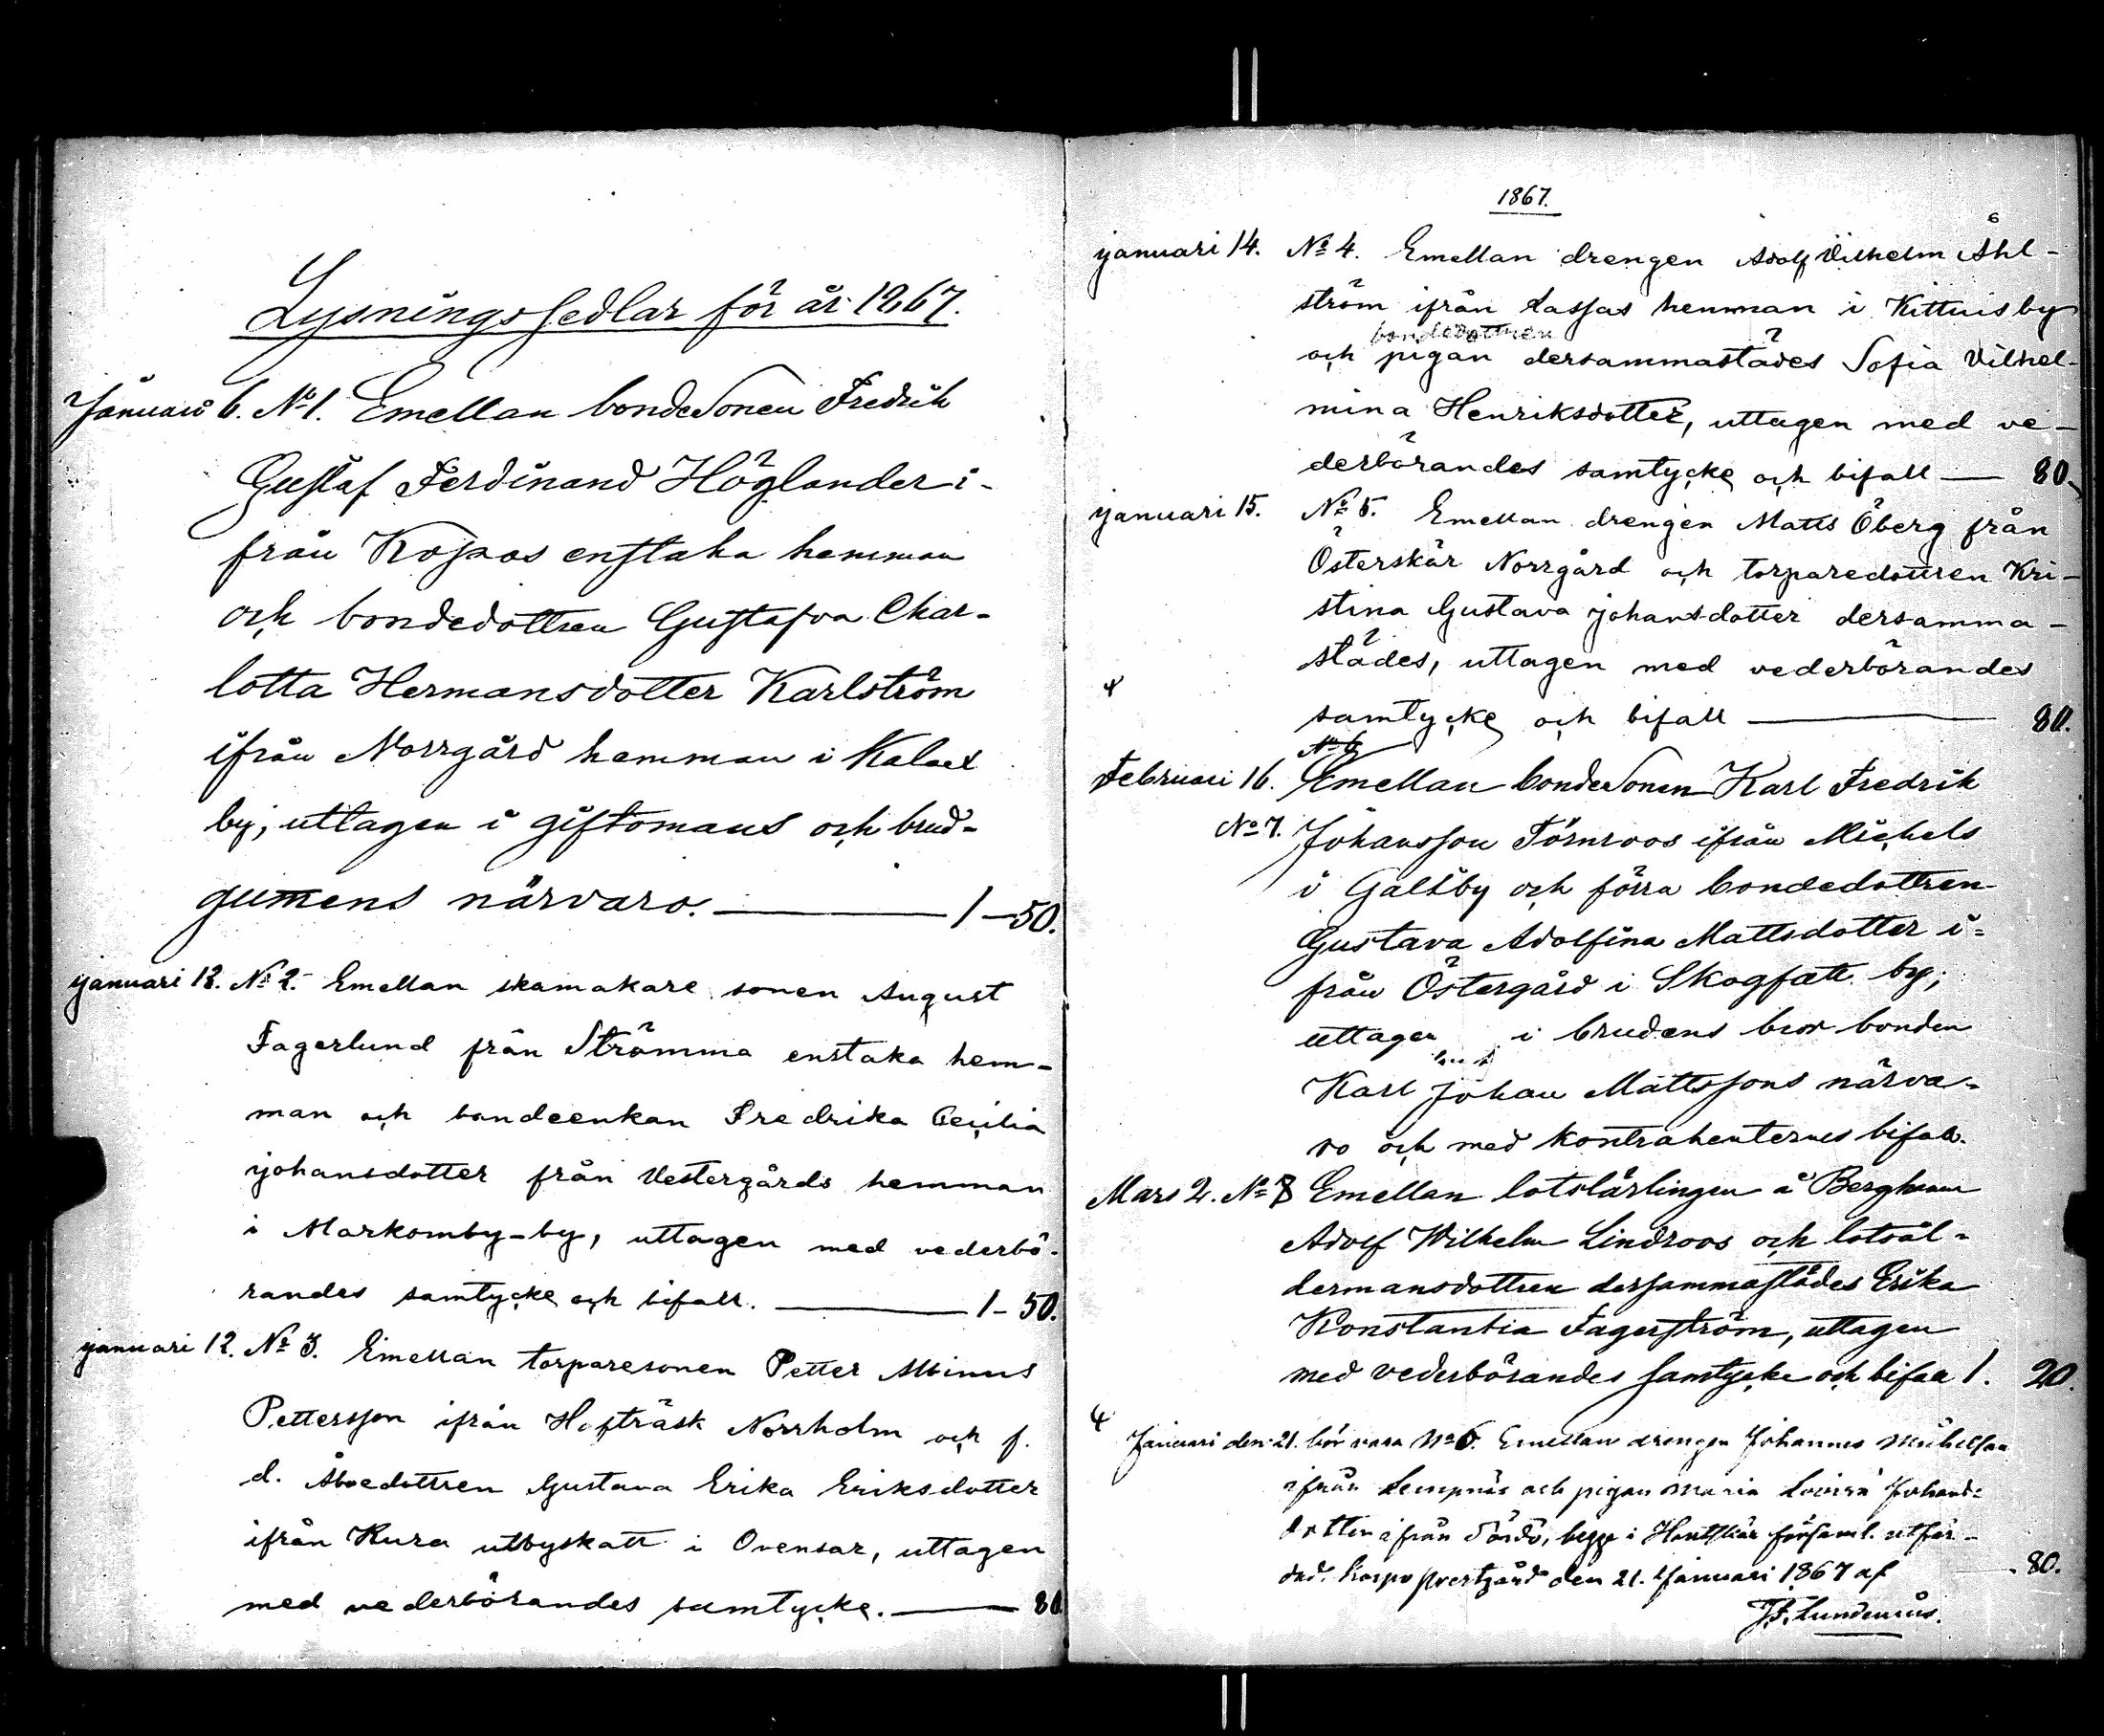 Lysningssedlar för år 1867.
Januari 6. No 1. Emellan bondesonen Fredrik
Gustaf Ferdinand Höglander i-
från Kopos enstaka hemman
och bondedottren Gustafva Char-
lotta Hermansdotter Karlström
ifrån Norrgård hemman i Kalax
by, uttagen i giftomans och brud-
gumens närvaro. — 1—50.
januari 12. No 2. Emellan skomakare sonen August
Fagerlund från Strömma enstaka hem-
man och bondeenkan Fredrika Cecilia
johansdotter från Vestergårds hemman
i Markomby-by, uttagen med vederbö-
randes samtycke och bifall. — 1-50.
januari 12. No 3. Emellan torparesonen Petter Albinus
Pettersson ifrån Hofträsk Norrholm och f.
d. Åboedottren Gustava Erika Eriksdotter
ifrån Kura utbyskatt i Ovensar, uttagen
med vederbörandes samtycke. — 80
1867.
6
januari 14. No 4. Emellan drengen Adolf Vilhelm Åhl-
ström ifrån Lassas hemman i Kittuis by
bondedottren
och pigan dersammastädes Sofia Vilhel-
mina Henriksdotter, uttagen med ve-
derbörandes samtycke och bifall — 80.
januari 15. No 5. Emellan drengen Matts Öberg från
Österskär Norrgård och torparedottren Kri-
stina Gustava johansdotter dersamma-
städes, uttagen med vederbörandes
samtycke och bifall — 80.
No 6
Februari 16. Emellan bondesonen Karl Fredrik
No 7. Johansson Törnroos ifrån Michels
i Galtby och förra bondedottren
Gustava Adolfina Mattsdotter i=
från Östergård i Skogfatt by;
uttagen i brudens bror bonden
Karl Johan Mattssons närva-
ro och med kontrahenternes bifall.
Mars 2. No 8 Emellan lotslärlingen å Berghamn
Adolf Wilhelm Lindroos och lotsål-
dermansdottren dersammastädes Erika
Konstantia Fagerström, uttagen
med vederbörandes samtycke och bifall 1. 20.
Januari den 21. bör vara No 6. Emellan drengen Johannes Michelsson
ifrån Lempnäs och pigan Maria Lovisa Johans=
dotter ifrån Nördö, begge i Houtskär församl. utfär-
dad. Korpo prestgård den 21. Januari 1867 af — 80.
J. F. Lundenius.